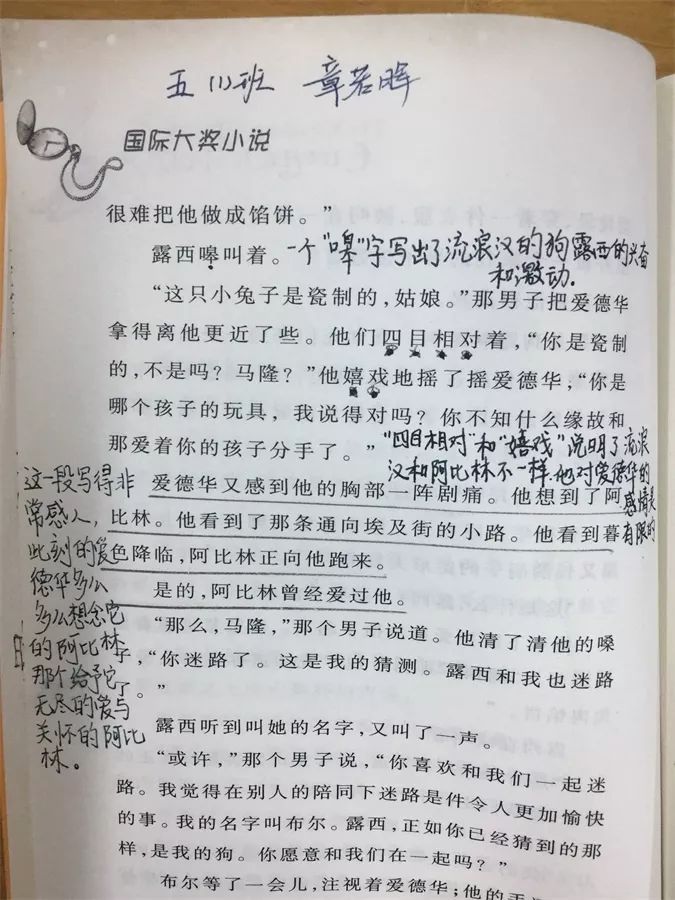 五(1)班 章若晖
国际大奖小说
很难把他做成馅饼。”
露西嗥叫着。
一个“嗥”字写出了流浪汉的狗露西的兴奋
和激动.
“这只小兔子是瓷制的，姑娘。”那男子把爱德华
拿得离他更近了些。他们四目相对着，“你是瓷制
的，不是吗？马隆？”他嬉戏地摇了摇爱德华，“你是
哪个孩子的玩具，我说得对吗？你不知什么缘故和
那爱着你的孩子分手了。”
“四目相对”和“嬉戏”说明了流浪
汉和阿比林不一样.他对爱德华的
感情是
有限的
爱德华又感到他的胸部一阵剧痛。他想到了阿
比林。他看到了那条通向埃及街的小路。他看到暮
色降临，阿比林正向他跑来。
是的，阿比林曾经爱过他。
这一段写得非
常感人，
此刻的爱
德华多么
多么想念它
的阿比林
那个给予它
无尽的爱与
关怀的阿比
林。
“那么，马隆，”那个男子说道。他清了清他的嗓
子，“你迷路了。这是我的猜测。露西和我也迷路
了。”
露西听到叫她的名字，又叫了一声。
“或许，”那个男子说，“你喜欢和我们一起迷
路。我觉得在别人的陪同下迷路是件令人更加愉快
的事。我的名字叫布尔。露西，正如你已经猜到的那
样，是我的狗。你愿意和我们在一起吗？”
布尔等了一会儿，注视着爱德华；他的手